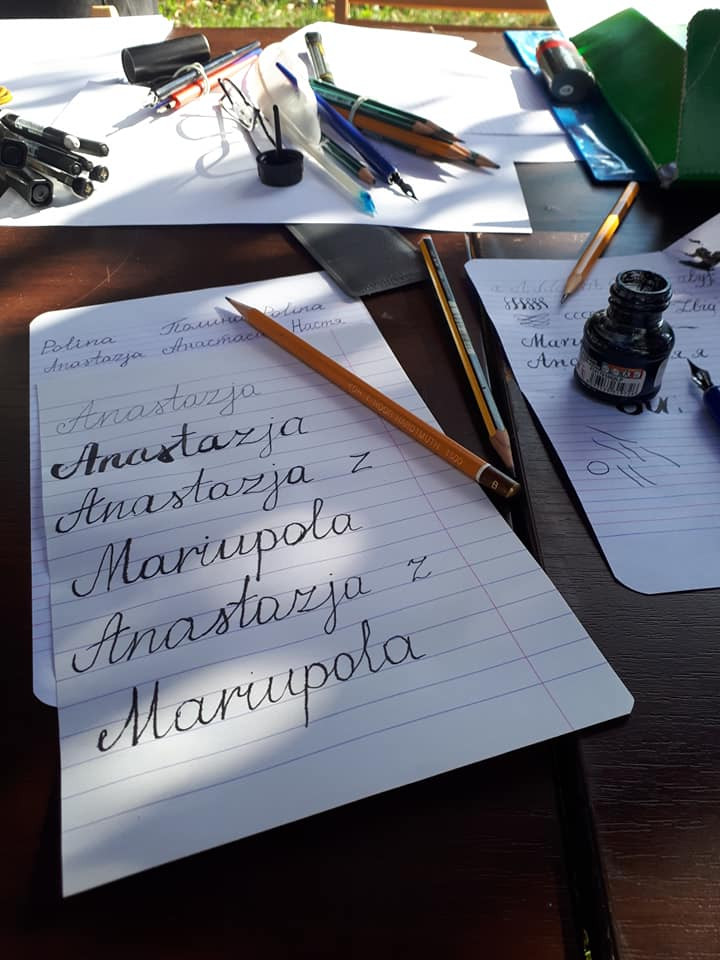 Polina Полина Polina
Anastazja Анастасия Настя
Anastazja
Anastazja
Anastazja z
Mariupola
Anastazja z
Mariupola
KOH-I-NOOR HARDTMUTH 1500
B